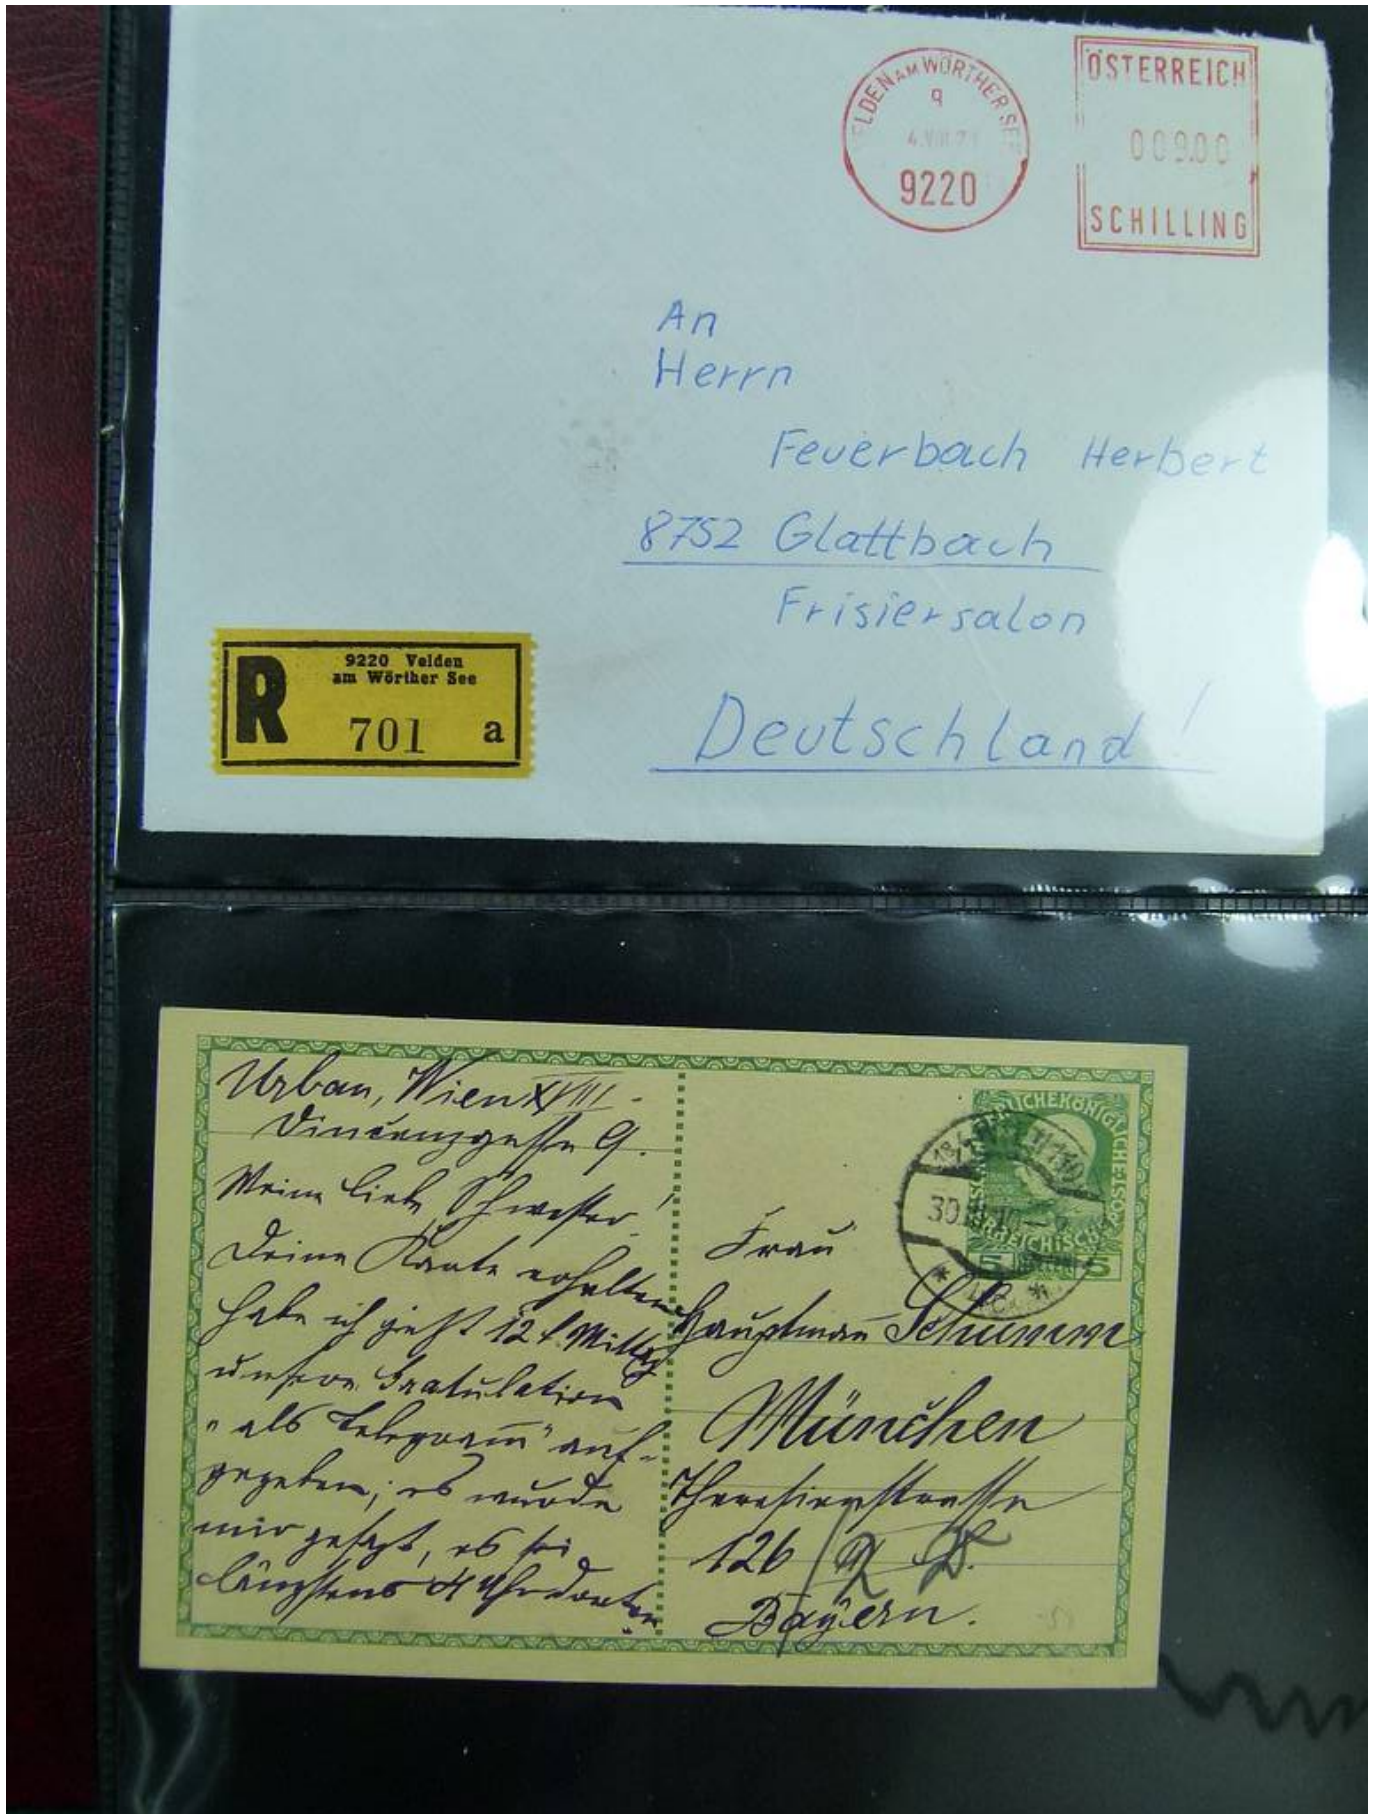 ELDEN AM WÖRTHER SEE
9
4.VIII.7
9220
ÖSTERREICH
009.00
SCHILLING
An
Herrn
Feuerbach Herbert
8752 Glattbach
Frisiersalon
Deutschland!
R
9220 Velden
am Wörther See
701 a
Urban, Wien XVIII -
gasse 9.
Meine liebe Schwester!
Deine Karte erhalten
habe ich jetzt 12 Mittag
unsere Gratulation
"als Telegramm" auf-
gegeben; es wurde
mir gesagt, es sei
längstens 4 Uhr dorten
KAISERLICHEKÖNIGLICHE ÖSTERREICHISCHE
5 5
18/1 110
30
Frau
Hauptmann Schumm
München
Theresienstrasse
126
Bayern.